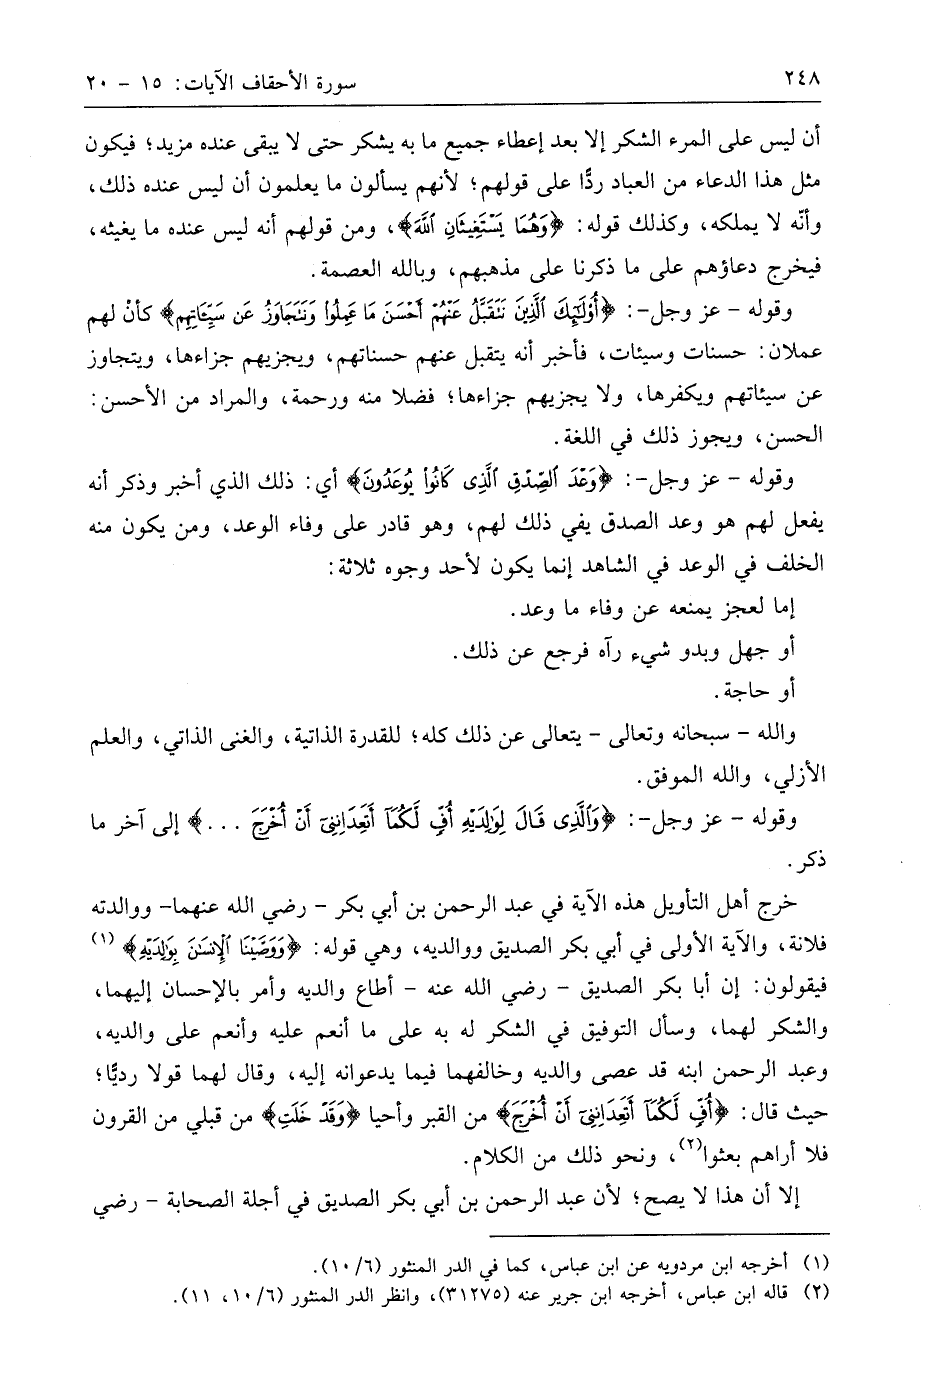 ٢٤٨ سورة الأحقاف الآيات: ١٥ - ٢٠
أن ليس على المرء الشكر إلا بعد إعطاء جميع ما به يشكر حتى لا يبقى عنده مزيد؛ فيكون
مثل هذا الدعاء من العباد ردًّا على قولهم؛ لأنهم يسألون ما يعلمون أن ليس عنده ذلك،
وأنّه لا يملكه، وكذلك قوله: ﴿وَهُمَا يَسْتَغِيثَانِ ٱللَّهَ﴾، ومن قولهم أنه ليس عنده ما يغيثه،
فيخرج دعاؤهم على ما ذكرنا على مذهبهم، وبالله العصمة.
وقوله - عز وجل-: ﴿أُوْلَٰٓئِكَ ٱلَّذِينَ نَتَقَبَّلُ عَنْهُمْ أَحْسَنَ مَا عَمِلُوا۟ وَنَتَجَاوَزُ عَن سَيِّـَٔاتِهِمْ﴾ كأنْ لهم
عملان: حسنات وسيئات، فأخبر أنه يتقبل عنهم حسناتهم، ويجزيهم جزاءها، ويتجاوز
عن سيئاتهم ويكفرها، ولا يجزيهم جزاءها؛ فضلا منه ورحمة، والمراد من الأحسن:
الحسن، ويجوز ذلك في اللغة.
وقوله - عز وجل-: ﴿وَعْدَ ٱلصِّدْقِ ٱلَّذِى كَانُوا۟ يُوعَدُونَ﴾ أي: ذلك الذي أخبر وذكر أنه
يفعل لهم هو وعد الصدق يفي ذلك لهم، وهو قادر على وفاء الوعد، ومن يكون منه
الخلف في الوعد في الشاهد إنما يكون لأحد وجوه ثلاثة:
إما لعجز يمنعه عن وفاء ما وعد.
أو جهل وبدو شيء رآه فرجع عن ذلك.
أو حاجة.
والله - سبحانه وتعالى - يتعالى عن ذلك كله؛ للقدرة الذاتية، والغنى الذاتي، والعلم
الأزلي، والله الموفق.
وقوله - عز وجل-: ﴿وَٱلَّذِى قَالَ لِوَٰلِدَيْهِ أُفٍّ لَّكُمَآ أَتَعِدَانِنِىٓ أَنْ أُخْرَجَ ...﴾ إلى آخر ما
ذكر.
خرج أهل التأويل هذه الآية في عبد الرحمن بن أبي بكر - رضي الله عنهما- ووالدته
فلانة، والآية الأولى في أبي بكر الصديق ووالديه، وهي قوله: ﴿وَوَصَّيْنَا ٱلْإِنسَٰنَ بِوَٰلِدَيْهِ﴾ (١)
فيقولون: إن أبا بكر الصديق - رضي الله عنه - أطاع والديه وأمر بالإحسان إليهما،
والشكر لهما، وسأل التوفيق في الشكر له به على ما أنعم عليه وأنعم على والديه،
وعبد الرحمن ابنه قد عصى والديه وخالفهما فيما يدعوانه إليه، وقال لهما قولا رديًّا؛
حيث قال: ﴿أُفٍّ لَّكُمَآ أَتَعِدَانِنِىٓ أَنْ أُخْرَجَ﴾ من القبر وأحيا ﴿وَقَدْ خَلَتِ﴾ من قبلي من القرون
فلا أراهم بعثوا(٢)، ونحو ذلك من الكلام.
إلا أن هذا لا يصح؛ لأن عبد الرحمن بن أبي بكر الصديق في أجلة الصحابة - رضي
(١) أخرجه ابن مردويه عن ابن عباس، كما في الدر المنثور (١٠/٦).
(٢) قاله ابن عباس، أخرجه ابن جرير عنه (٣١٢٧٥)، وانظر الدر المنثور (١٠/٦، ١١).